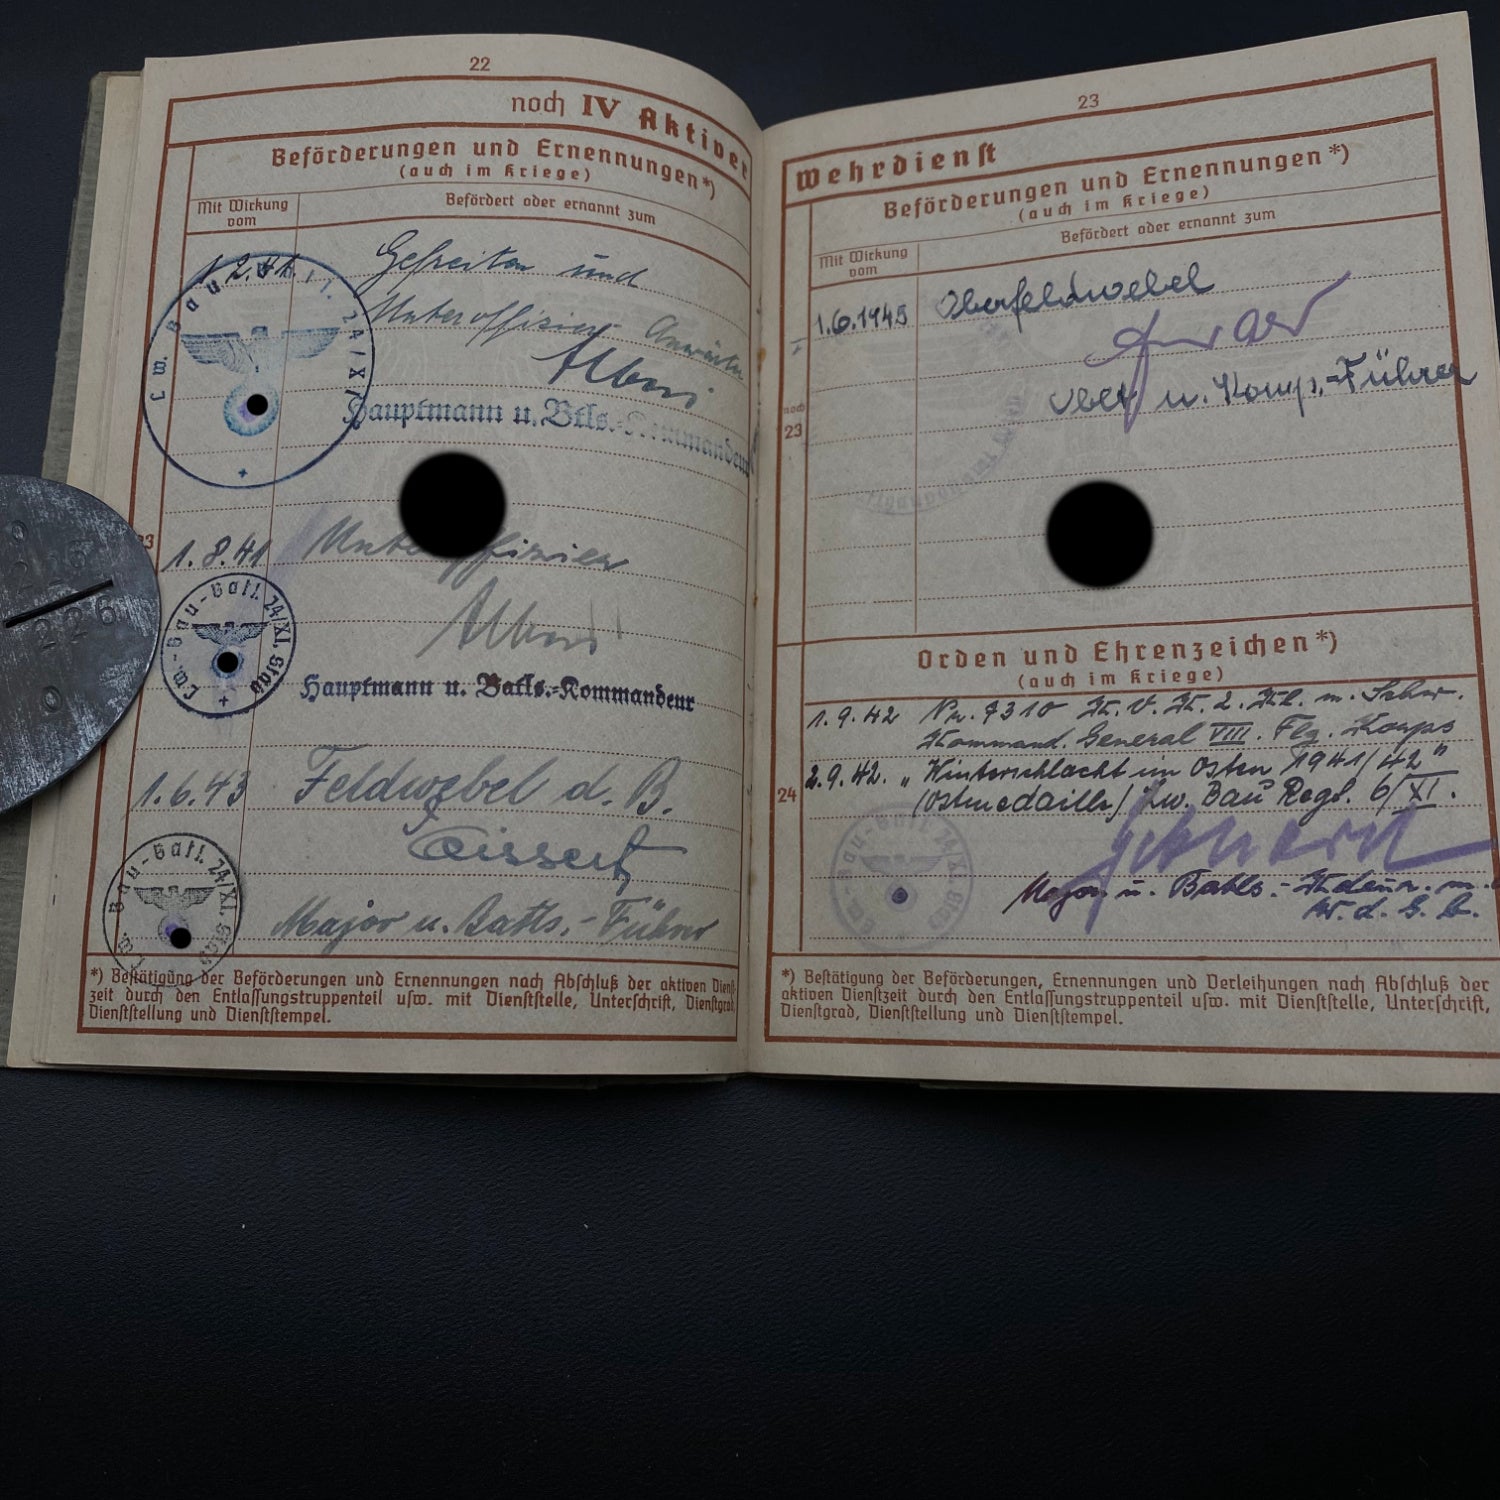 22
noch IV Aktiver
Beförderungen und Ernennungen*)
(auch im Kriege)
Mit Wirkung vom
Befördert oder ernannt zum
1.2.41. Gefreiten und
Unteroffizier-Anwärter
Hauptmann u. Btls.-Kommandeur
Lw. Bau 24/XI
23
1.8.41 Unteroffizier
Lw.-Bau-Batl. 24/XI, Stab
Hauptmann u. Batls.-Kommandeur
1.6.43 Feldwebel d. B.
Lw.-Bau-Batl. 24/XI, Stab
Major u. Batls.-Führer
*) Bestätigung der Beförderungen und Ernennungen nach Abschluß der aktiven Dienst-
zeit durch den Entlassungstruppenteil usw. mit Dienststelle, Unterschrift, Dienstgrad,
Dienststellung und Dienststempel.
23
Wehrdienst
Beförderungen und Ernennungen*)
(auch im Kriege)
Mit Wirkung vom
Befördert oder ernannt zum
1.6.1945 Oberfeldwebel
u. Komp.-Führer
noch
23
Orden und Ehrenzeichen*)
(auch im Kriege)
1.9.42 Nr. 7310 K.V.K. 2. Kl. m. Schw.
Kommand. General VIII. Flg. Korps
24
2.9.42. „Winterschlacht im Osten 1941/42"
(Ostmedaille) Lw. Bau Regt. 6/XI.
Lw.-Bau-Batl. 24/XI, Stab
Major u. Batls.-Kdeur. m.
W. d. G. b.
*) Bestätigung der Beförderungen, Ernennungen und Verleihungen nach Abschluß der
aktiven Dienstzeit durch den Entlassungstruppenteil usw. mit Dienststelle, Unterschrift,
Dienstgrad, Dienststellung und Dienststempel.
226